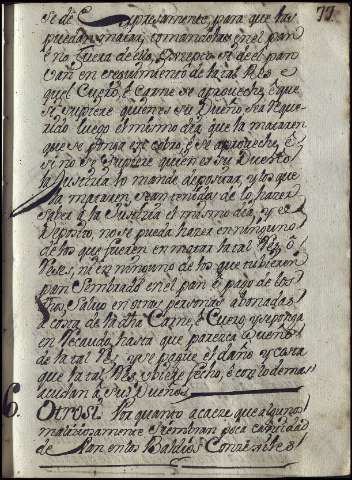 77.
se dé expresamente, para que las
puedan matar, tomandolas en el pan
é no fuera de ello, é excepto si de el pan
van en seguimiento de la tal Res
que el Cuero, é Carne se aproveche, é que
si supiere quien es su Dueño sea reque-
rido luego el mismo dia que la mataren
que se ponga en cobro, é se aproveche, é
si no se supiere quien es su Dueño
la Justicia lo mande depositar, y los que
la mataren sean tenidos de lo hazer
saber á la Justicia el mismo dia, y el
deposito, no se pueda hazer en ninguno
de los que fueren en matar la tal Res, ó
Reses, ni en ninguno de los que tubieren
pan Sembrado en el pan ó pago de los
Salvo en otras personas abonadas
á costa de la dha Carne, é Cuero, y se ponga
en recaudo, hasta que parezca Dueño
de la tal Res, y se pague el daño, y costa
que la tal Res obiere fecho, é con lo demas
acudan á sus Dueños.
6. Otrosi. Por quanto acaeze que algunos
maliciosamente siembran poca cantidad
de Pan en los Baldios Concexiles